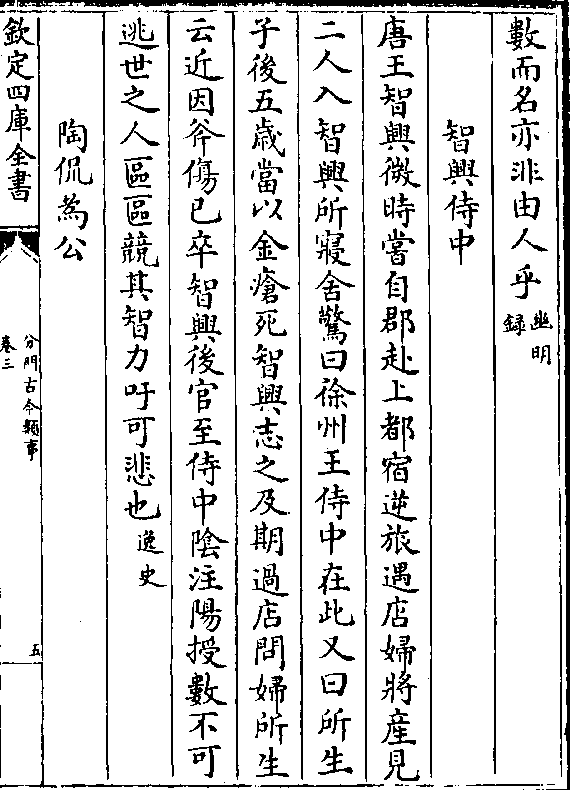 數而名亦非由人乎幽明
録
智興侍中
唐王智興微時嘗自郡赴上都宿逆旅遇店婦將産見
二人入智興所寢舍驚曰徐州王侍中在此又曰所生
子後五歳當以金瘡死智興志之及期過店問婦所生
云近因斧傷已卒智興後官至侍中陰注陽授數不可
逃世之人區區競其智力吁可悲也逸史
陶侃為公
欽定四庫全書
分門古今類事
卷三
五